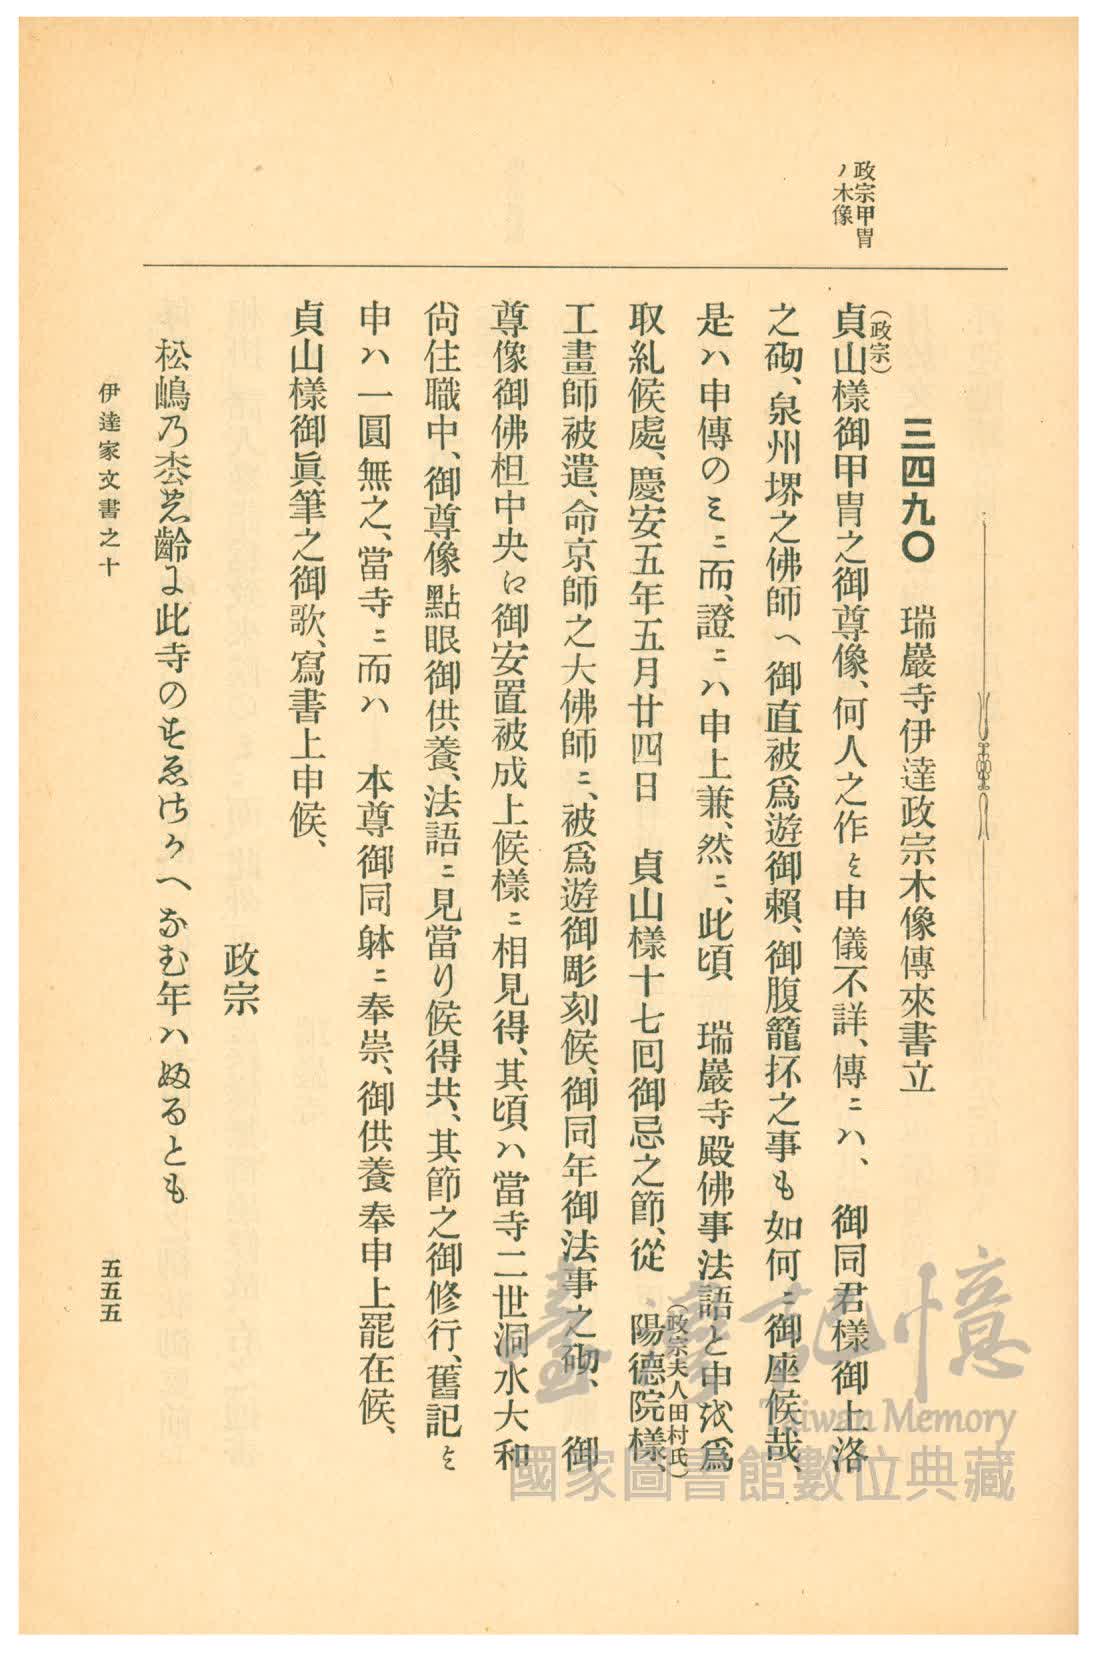 政宗甲冑
ノ木像
三四九〇　瑞巖寺伊達政宗木像傳來書立
(政宗)
貞山樣御甲冑之御尊像、何人之作と申儀不詳、傳ニハ、　御同君樣御上洛
之砌、泉州堺之佛師へ御直被爲遊御賴、御腹籠抔之事も如何ニ御座候哉、
是ハ申傳のミニ而、證ニハ申上兼、然ニ、此頃　瑞巖寺殿佛事法語と申伐爲
取糺候處、慶安五年五月廿四日　貞山樣十七回御忌之節、從　陽德院樣、
(政宗夫人田村氏)
工畫師被遣、命京師之大佛師ニ、被爲遊御彫刻候、御同年御法事之砌、　御
尊像御佛柦中央に御安置被成上候樣ニ相見得、其頃ハ當寺二世洞水大和
尙住職中、御尊像點眼御供養、法語ニ見當り候得共、其節之御修行、舊記と
申ハ一圓無之、當寺ニ而ハ　本尊御同躰ニ奉崇、御供養奉申上罷在候、
貞山樣御眞筆之御歌、寫書上申候、
政宗
松嶋乃枩の齡に此寺のすゑさかへなむ年ハふるとも
伊達家文書之十
五五五
臺灣記憶
Taiwan Memory
國家圖書館數位典藏